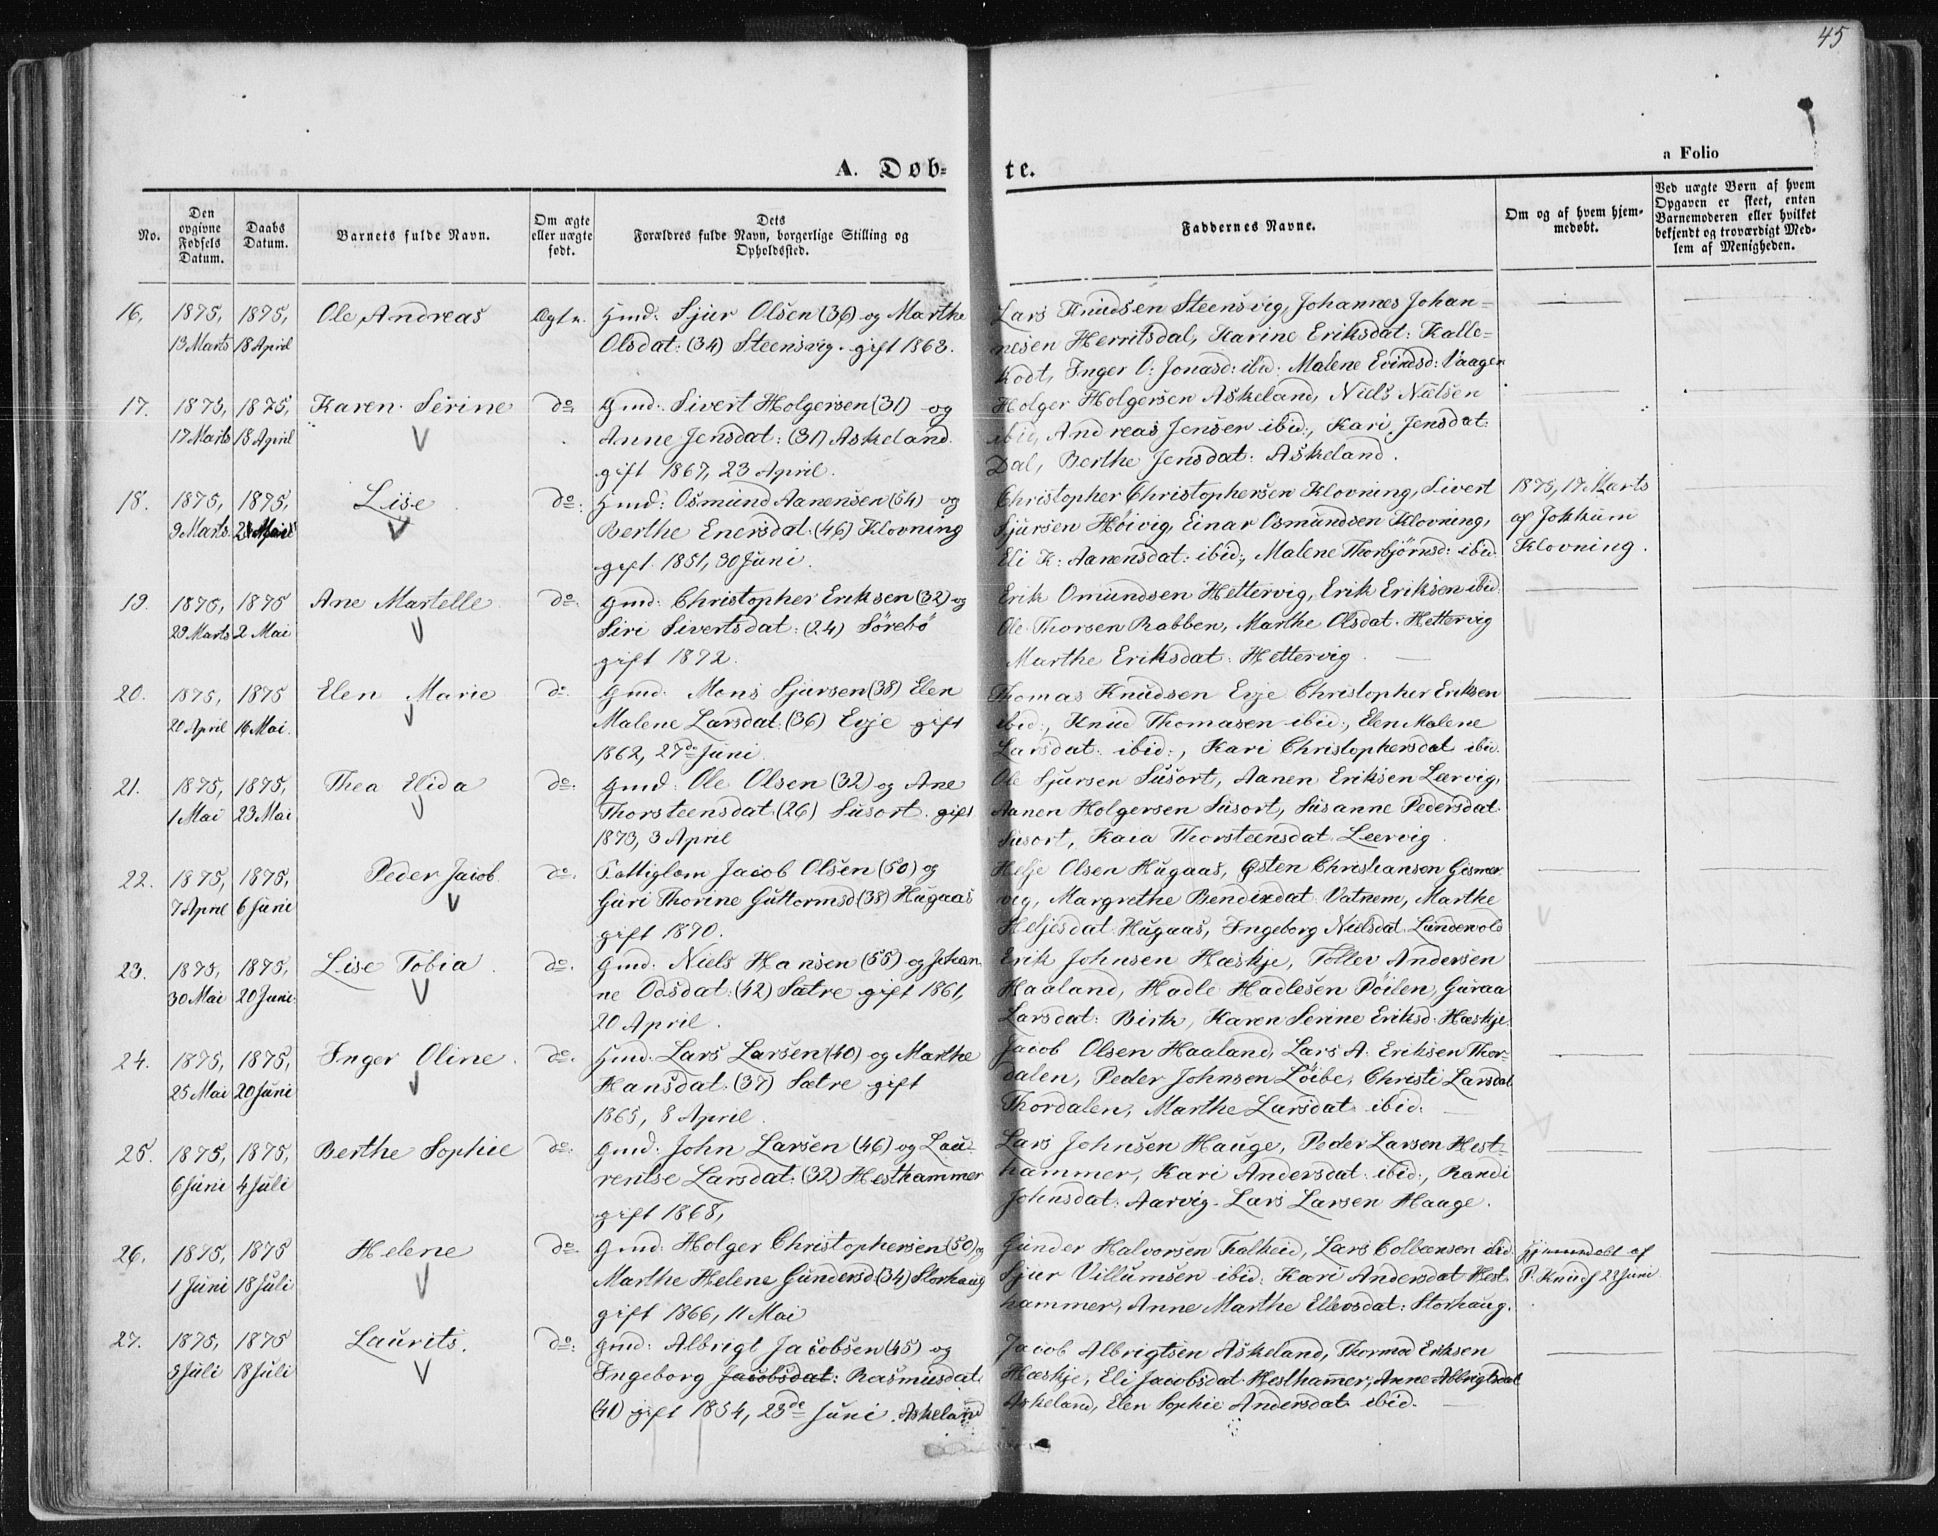 45
a Folio
A. Døb-
te.
No.
Den opgivne Fødsels Datum.
Daabs Datum.
Barnets fulde Navn.
Om ægte eller uægte født.
Dets Forældres fulde Navn, borgerlige Stilling og Opholdssted.
Faddernes Navne.
Om og af hvem hjemmedøbt.
Ved uægte Børn af hvem Opgaven er skeet, enten Barnemoderen eller hvilket bekjendt og troværdigt Medlem af Menigheden.
16. 1875, 1875, Ole Andreas Ægte. Gmd: Sjur Olsen (36) og Marthe
13 Marts 18 April Olsdat: (34) Steensvig. gift 1863.
Lars Knudsen Steensvig, Johannes Johan-
nesen Herritsdal, Karine Eriksdat: Kalle-
kodt, Inger O: Jonasd: ibid: Malene Evindsd: Vaagen
17. 1875, 1875, Karen Serine do Gmd: Sivert Holgersen (31) og
17 Marts 18 April Anne Jensdat: (31) Askeland
gift 1867, 23 April.
Holger Holgersen Askeland, Niels Nielsen
ibid, Andreas Jensen ibid:, Kari Jensdat:
Dal, Berthe Jensdat: Askeland.
18. 1875, 1875, Lise do: Gmd: Osmund Aanensen (54) og
9 Marts. Berthe Enersdat: (46) Klovning
gift 1851, 30 Juni.
Christopher Christophersen Klovning, Sivert
Sjursen Høivig, Einar Osmundsen Klovning,
Eli K: Aanensdat: ibid:, Malene Thorbjørnsd: ibid.
1875, 17 Marts
af Jokkum
Klovning.
19. 1875, 1875 Ane Martelle do: Gmd: Christopher Eriksen (32) og
29 Marts 2 Mai Siri Sivertsdat: (24) Sørebø
gift 1872.
Erik Omundsen Hettervig, Erik Eriksen ibid:
Ole Thorsen Rabben, Marthe Olsdat. Hettervig
Marthe Eriksdat: Hettervig
20. 1875, 1875 Elen Marie do. Gmd: Mons Sjursen (38) Elen
20 April 16 Mai. Malene Larsdat: (36) Evje gift
1862, 27de Juni
Thomas Knudsen Evje Christopher Eriksen
ibid:, Knud Thomasen ibid:, Elen Malene
Larsdat: ibid:, Kari Christophersdat ibid.
21. 1875, 1875, Thea Elida do: Gmd: Ole Olsen (32) og Ane
1 Mai 23 Mai Thorsteensdat: (26) Susort. gift
1873, 3 April
Ole Sjursen Susort, Aanen Eriksen Leervig,
Aanen Holgersen Susort, Susanne Pedersdat.
Susort, Kaia Thorsteensdat. Leervig.
22. 1875, 1875, Peder Jacob do. Fattiglem Jacob Olsen (50) og
7 April 6 Juni Guri Thorine Guttormsd (38) Hugaas
gift 1870.
Helje Olsen Hugaas, Østen Christiansen Gismer
vig, Margrethe Bendixdat. Vatnem, Marthe
Heljesdat. Hugaas, Ingeborg Nielsdat. Lundevold
23. 1875, 1875, Lise Tobia. do. Gmd: Niels Hansen (55) og Johan
30 Mai 20 Juni. ne Odsdat: (42) Sætre gift 1861,
20 April.
Erik Johnsen Hæskje, Tollev Andersen
Haaland, Hadle Hadlesen Pøilen, Guraa
Larsdat: Birk, Karen Serine Eriksd. Hæskje.
24. 1875, 1875, Inger Oline. do. Gmd: Lars Larsen (40) og Marthe
25 Mai 20 Juni Hansdat. (37) Sætre gift
1865, 8 April.
Jacob Olsen Haaland, Lars A. Eriksen Thor-
dalen, Peder Johnsen Løibe, Christi Larsdat
Thordalen, Marthe Larsdat ibid.
25. 1875, 1875, Berthe Sophie do: Gmd: John Larsen (46) og Lau-
6 Juni 4 Juli rentse Larsdat: (32) Hesthammer
gift 1868,
Lars Johnsen Hauge, Peder Larsen Hest-
hammer, Kari Andersdat. ibid:, Randi
Johnsdat. Aarvig. Lars Larsen Haage.
26. 1875, 1875 Helene do. Gmd: Holger Christophersen (50) og
1 Juni 18 Juli Marthe Helene Gundersd (34) Storhaug
gift 1866, 11 Mai
Gunder Halvorsen Falkeid, Lars Colbensen ibid.
Sjur Villumsen ibid: Kari Andersdat Hest.
hammer, Anne Marthe Ellevsdat: Storhaug.
Hjemmedøbt af
P. Knuds 22 Juni
27. 1875, 1875 Laurits. do: Gmd: Albrigt Jacobsen (45) og
3 Juli 18 Juli Ingeborg Jacobsdat: Rasmusdat.
(41) gift 1854, 23de Juni. Askeland
Jacob Albrigtsen Askeland, Thormod Eriksen
Hæskje, Eli Jacobsdat. Hesthammer, Anne Albrigtsdat
Askeland, Elen Sophie Andersdat. ibid.